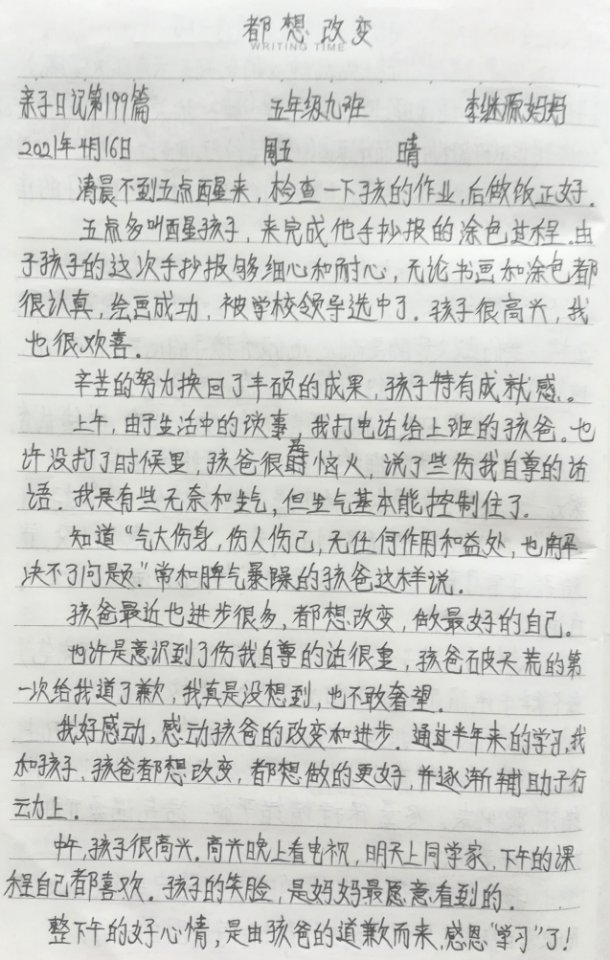 都想改变
WRITING TIME
亲子日记第199篇 五年级九班 李继源妈妈
2021年4月16日 周五 晴
清晨不到五点醒来，检查一下孩的作业，后做饭正好.
五点多叫醒孩子，来完成他手抄报的涂色过程.由
于孩子的这次手抄报够细心和耐心，无论书画和涂色都
很认真，绘画成功，被学校领导选中了.孩子很高兴，我
也很欢喜.
辛苦的努力换回了丰硕的成果，孩子特有成就感。.
上午，由于生活中的琐事，我打电话给上班的孩爸。也
许没打了时候里，孩爸很恼火，说了些伤我自尊的话
语.我是有些无奈和生气，但生气基本能控制住了.
知道“气大伤身，伤人伤己，无任何作用和益处，也解
决不了问题.”常和脾气暴躁的孩爸这样说.
孩爸最近也进步很多，都想改变，做最好的自己。
也许是意识到了伤我自尊的话很重，孩爸破天荒的第
一次给我道了歉，我真是没想到，也不敢奢望.
我好感动，感动孩爸的改变和进步.通过半年来的学习，我
和孩子、孩爸都想改变，都想做的更好，并逐渐辅助于行
动上.
中午，孩子很高兴.高兴晚上看电视，明天上同学家，下午的课
程自己都喜欢.孩子的笑脸，是妈妈最愿意看到的.
整下午的好心情，是由孩爸的道歉而来，感恩“学习”了！